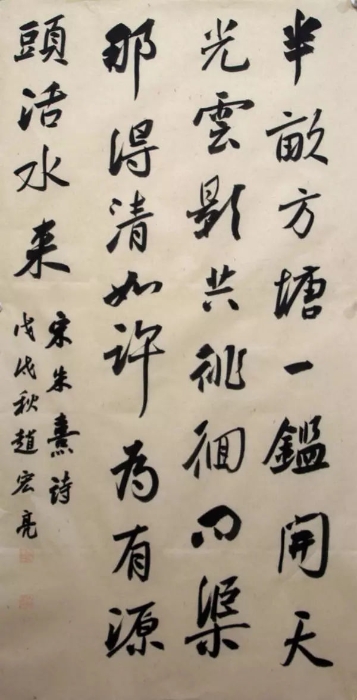 半畝方塘一鑑開天
光雲影共徘徊問渠
那得清如許為有源
頭活水来
宋朱熹詩
戊戌秋趙宏亮